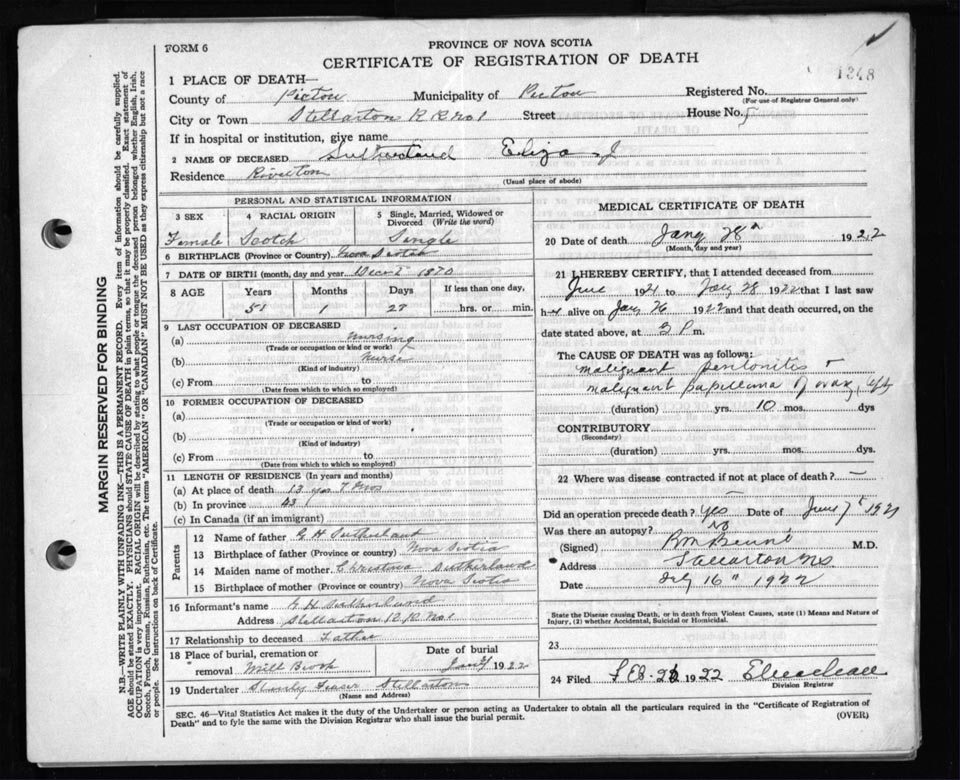 FORM 6
PROVINCE OF NOVA SCOTIA
CERTIFICATE OF REGISTRATION OF DEATH
1248
1 PLACE OF DEATH—
County of Pictou Municipality of Pictou Registered No.
(For use of Registrar General only)
City or Town Stellarton R R No 1 Street House No.
If in hospital or institution, give name
2 NAME OF DECEASED Sutherland Eliza J
Residence Riverton
(Usual place of abode)
MARGIN RESERVED FOR BINDING
N.B.—WRITE PLAINLY WITH UNFADING INK—THIS IS A PERMANENT RECORD. Every item of information should be carefully supplied.
AGE should be stated EXACTLY. PHYSICIANS should STATE CAUSE OF DEATH in plain terms, so that it may be properly classified. Exact statement of
OCCUPATION is very important. RACIAL ORIGIN will be described by stating to what people or tongue the deceased person belonged whether English, Irish,
Scotch, French, German, Russian, Ruthenian, etc. The terms "AMERICAN" OR "CANADIAN" MUST NOT BE USED as they express citizenship but not a race
or people. See instructions on back of Certificate.
PERSONAL AND STATISTICAL INFORMATION
3 SEX 4 RACIAL ORIGIN 5 Single, Married, Widowed or
Divorced (Write the word)
Female Scotch Single
6 BIRTHPLACE (Province or Country) Nova Scotia
7 DATE OF BIRTH (month, day and year) 1870
8 AGE Years Months Days If less than one day,
51 1 27 hrs. or min.
9 LAST OCCUPATION OF DECEASED
(a) nursing
(Trade or occupation or kind or work)
(b) nurse
(Kind of industry)
(c) From to
(Date from which to which so employed)
10 FORMER OCCUPATION OF DECEASED
(a)
(Trade or occupation or kind of work)
(b)
(Kind of industry)
(c) From to
(Date from which to which so employed)
11 LENGTH OF RESIDENCE (In years and months)
(a) At place of death 13 yrs 7 mos
(b) In province
(c) In Canada (if an immigrant)
Parents
12 Name of father G H Sutherland
13 Birthplace of father (Province or country) Nova Scotia
14 Maiden name of mother Christina Sutherland
15 Birthplace of mother (Province or country) Nova Scotia
16 Informant's name G H Sutherland
Address Stellarton R R No 1
17 Relationship to deceased Father
18 Place of burial, cremation or Date of burial
removal Mill Brook 1922
19 Undertaker Fraser Stellarton
(Name and Address)
MEDICAL CERTIFICATE OF DEATH
20 Date of death Jany 28 1922
(Month, day and year)
21 I HEREBY CERTIFY, that I attended deceased from
June 1921 to Jany 28 1922 that I last saw
h alive on Jany 26 1922 and that death occurred, on the
date stated above, at 3 P m.
The CAUSE OF DEATH was as follows:
malignant peritonitis
malignant papilloma of ovary, left
(duration) yrs. 10 mos. dys
CONTRIBUTORY
(Secondary)
(duration) yrs. mos. dys.
22 Where was disease contracted if not at place of death?
Did an operation precede death? yes Date of June 7 1921
Was there an autopsy? No
(Signed) M.D.
Address Stellarton NS
Date 16 1922
State the Disease causing Death, or in death from Violent Causes, state (1) Means and Nature of
Injury, (2) whether Accidental, Suicidal or Homicidal.
23
24 Filed FEB 1922
Division Registrar
SEC. 46—Vital Statistics Act makes it the duty of the Undertaker or person acting as Undertaker to obtain all the particulars required in the "Certificate of Registration of
Death" and to fyle the same with the Division Registrar who shall issue the burial permit.
(OVER)